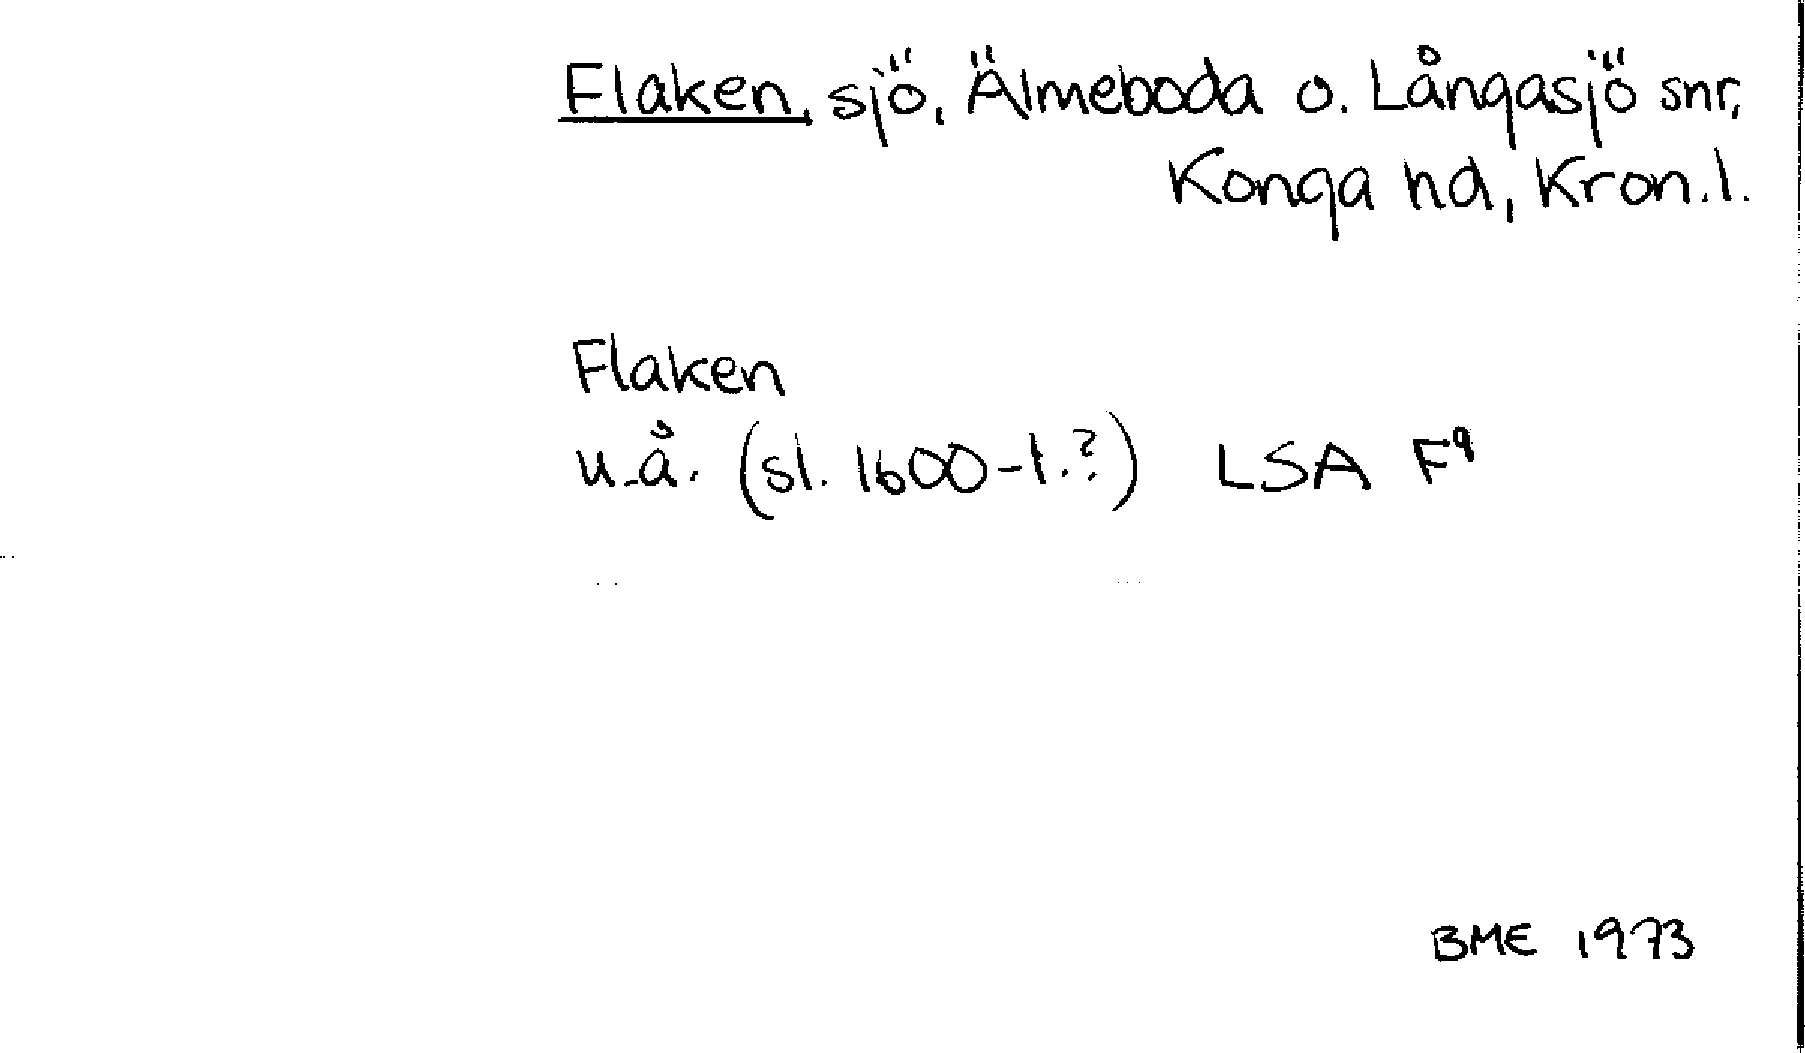 Flaken, sjö, Älmeboda o. Långasjö snr,
Konga hd, Kron.l.
Flaken
u.å. (sl. 1600-t.?) LSA F⁹
BME 1973